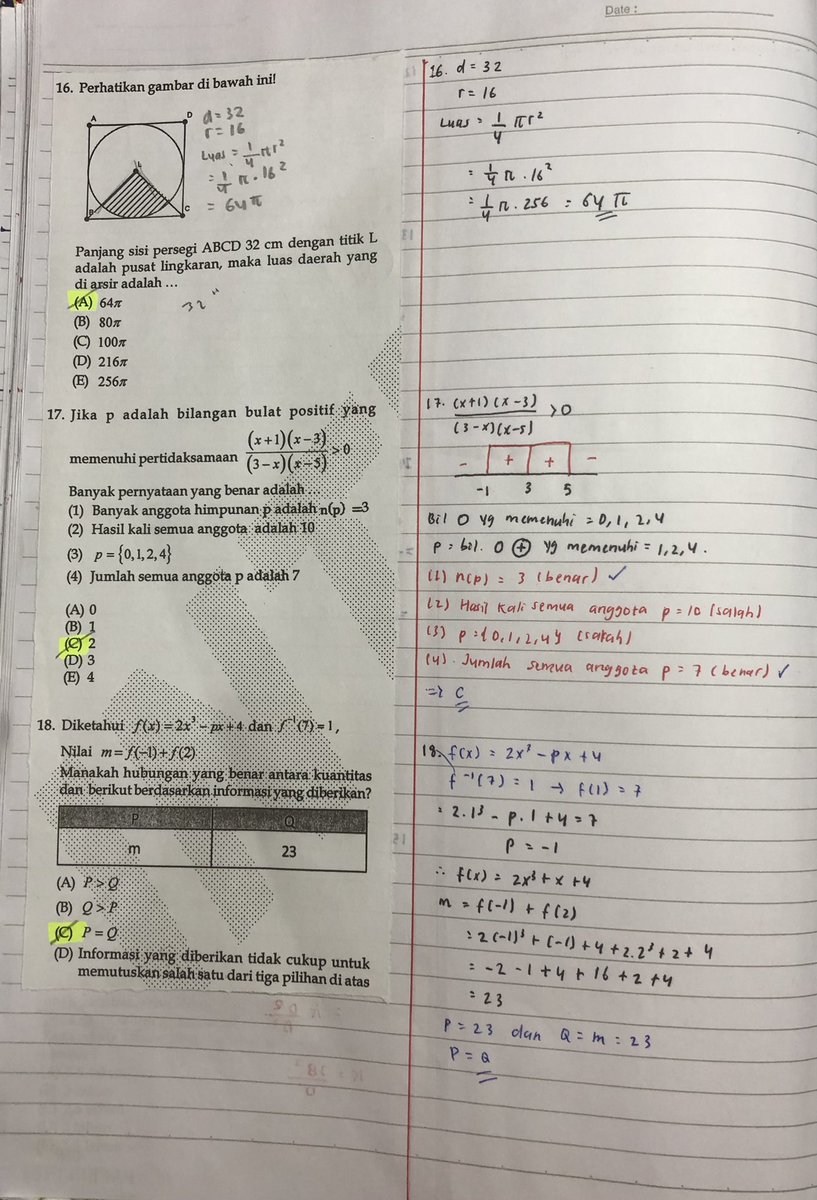 Date :
16. Perhatikan gambar di bawah ini!
A
D
L
B
C
d = 32
r = 16
Luas = 1/4 πr²
= 1/4 π . 16²
= 64π
Panjang sisi persegi ABCD 32 cm dengan titik L
adalah pusat lingkaran, maka luas daerah yang
di arsir adalah …
(A) 64π
32
(B) 80π
(C) 100π
(D) 216π
(E) 256π
17. Jika p adalah bilangan bulat positif yang
memenuhi pertidaksamaan (x+1)(x−3)/(3−x)(x−5) > 0
Banyak pernyataan yang benar adalah …
(1) Banyak anggota himpunan p adalah n(p) = 3
(2) Hasil kali semua anggota adalah 10
(3) p = {0,1,2,4}
(4) Jumlah semua anggota p adalah 7
(A) 0
(B) 1
(C) 2
(D) 3
(E) 4
18. Diketahui f(x) = 2x³ − px + 4 dan f⁻¹(7) = 1,
Nilai m = f(−1) + f(2)
Manakah hubungan yang benar antara kuantitas
dan berikut berdasarkan informasi yang diberikan?
P Q
m 23
(A) P > Q
(B) Q > P
(C) P = Q
(D) Informasi yang diberikan tidak cukup untuk
memutuskan salah satu dari tiga pilihan di atas
16. d = 32
r = 16
Luas = 1/4 πr²
= 1/4 π . 16²
= 1/4 π . 256 = 64 π
17. (x+1)(x−3)/(3−x)(x−5) > 0
− + + −
−1 3 5
Bil O yg memenuhi = 0, 1, 2, 4
P = bil. O ⊕ yg memenuhi = 1, 2, 4.
(1) n(p) = 3 (benar) ✓
(2) Hasil kali semua anggota p = 10 (salah)
(3) p = {0,1,2,4} (salah)
(4). Jumlah semua anggota p = 7 (benar) ✓
=> C
18. f(x) = 2x³ − px + 4
f⁻¹(7) = 1 → f(1) = 7
= 2.1³ − p.1 + 4 = 7
P = −1
∴ f(x) = 2x³ + x + 4
m = f(−1) + f(2)
= 2(−1)³ + (−1) + 4 + 2.2³ + 2 + 4
= −2 − 1 + 4 + 16 + 2 + 4
= 23
P = 23 dan Q = m = 23
P = Q